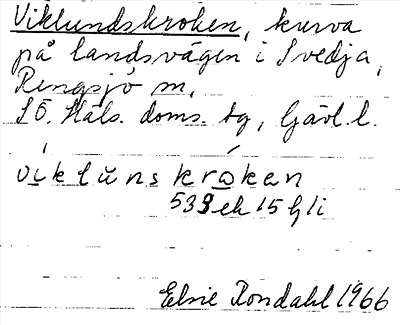 Viklundskroken, kurva
på landsvägen i Svedja,
Rengsjö m,
SÖ. Häls. doms. tg, Gävl. l.
viklŭnskroken
539 eh 15 G li
Elsie Rondahl 1966